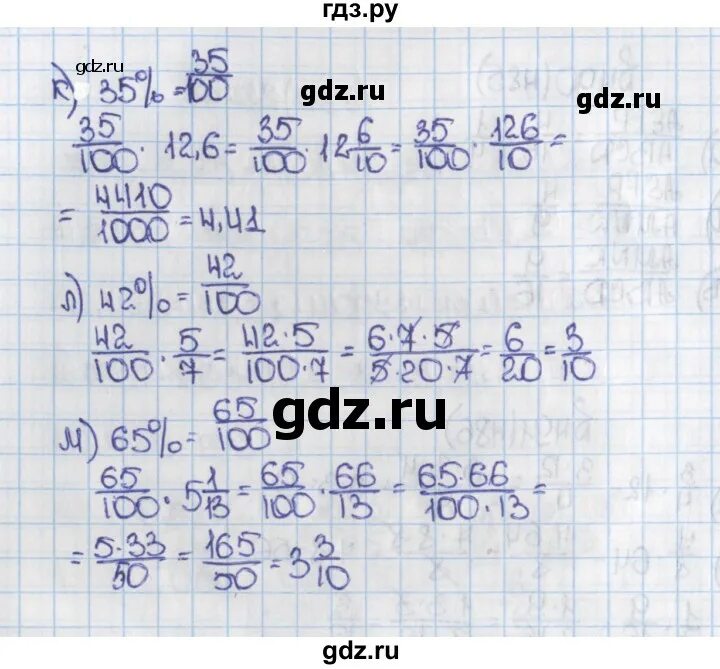 гдз.ру
gdz.ru
к) 35% = 35/100
gdz.ru
35/100 · 12,6 = 35/100 · 12 6/10 = 35/100 · 126/10 =
= 4410/1000 = 4,41
л) 42% = 42/100
42/100 · 5/7 = 42·5/100·7 = 6·7·5/5·20·7 = 6/20 = 3/10
gdz.ru
м) 65% = 65/100
65/100 · 5 1/13 = 65/100 · 66/13 = 65·66/100·13 =
= 5·33/50 = 165/50 = 3 3/10
gdz.ru
gdz.ru
gdz.ru